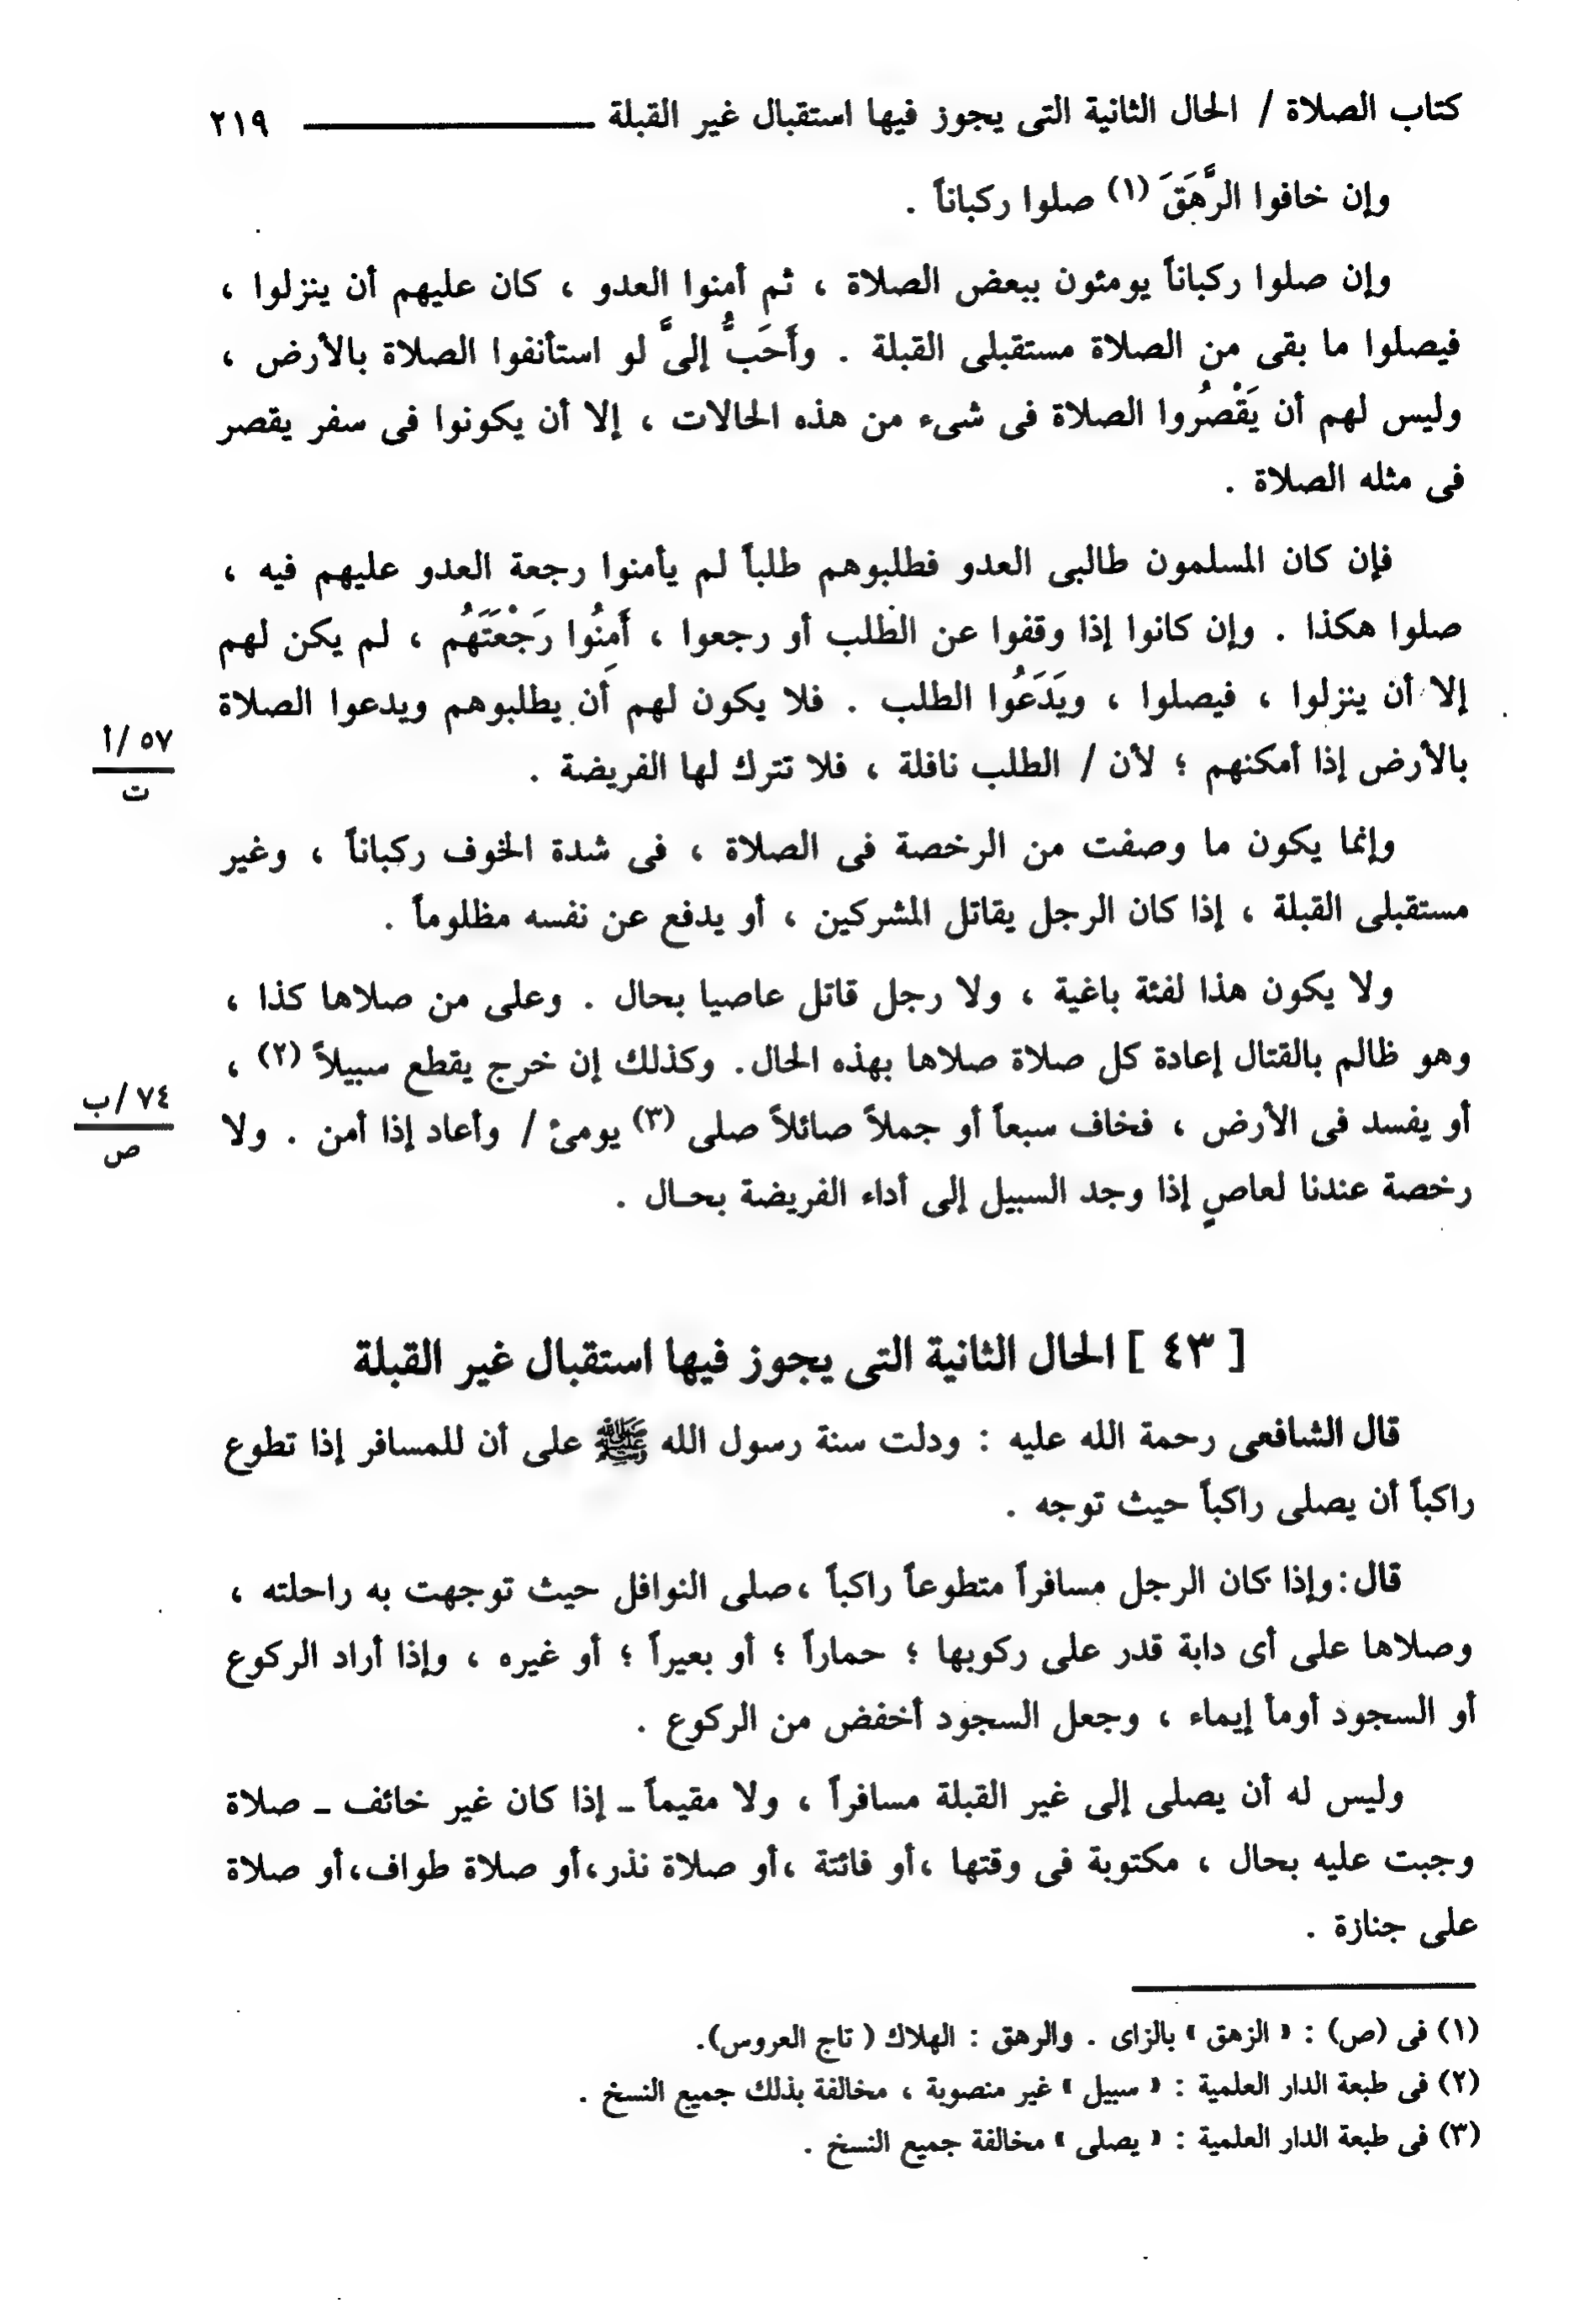 كتاب الصلاة / الحال الثانية التى يجوز فيها استقبال غير القبلة ـــــــــــــ ٢١٩
وإن خافوا الرَّهَقَ (١) صلوا ركباناً .
وإن صلوا ركباناً يومئون ببعض الصلاة ، ثم أمنوا العدو ، كان عليهم أن ينزلوا ،
فيصلوا ما بقى من الصلاة مستقبلى القبلة . وأَحَبُّ إلىَّ لو استأنفوا الصلاة بالأرض ،
وليس لهم أن يَقْصُروا الصلاة فى شىء من هذه الحالات ، إلا أن يكونوا فى سفر يقصر
فى مثله الصلاة .
فإن كان المسلمون طالبى العدو فطلبوهم طلباً لم يأمنوا رجعة العدو عليهم فيه ،
صلوا هكذا . وإن كانوا إذا وقفوا عن الطلب أو رجعوا ، أَمِنُوا رَجْعَتَهُم ، لم يكن لهم
إلا أن ينزلوا ، فيصلوا ، ويَدَعُوا الطلب . فلا يكون لهم أن يطلبوهم ويدعوا الصلاة
بالأرض إذا أمكنهم ؛ لأن / الطلب نافلة ، فلا تترك لها الفريضة .
٥٧ /أ
ت
وإنما يكون ما وصفت من الرخصة فى الصلاة ، فى شدة الخوف ركباناً ، وغير
مستقبلى القبلة ، إذا كان الرجل يقاتل المشركين ، أو يدفع عن نفسه مظلوماً .
ولا يكون هذا لفئة باغية ، ولا رجل قاتل عاصيا بحال . وعلى من صلاها كذا ،
وهو ظالم بالقتال إعادة كل صلاة صلاها بهذه الحال. وكذلك إن خرج يقطع سبيلاً (٢) ،
أو يفسد فى الأرض ، فخاف سبعاً أو جملاً صائلاً صلى (٣) يومئ / وأعاد إذا أمن . ولا
٧٤ /ب
ص
رخصة عندنا لعاصٍ إذا وجد السبيل إلى أداء الفريضة بحـال .
[ ٤٣ ] الحال الثانية التى يجوز فيها استقبال غير القبلة
قال الشافعى رحمة الله عليه : ودلت سنة رسول الله ﷺ على أن للمسافر إذا تطوع
راكباً أن يصلى راكباً حيث توجه .
قال:وإذا كان الرجل مسافراً متطوعاً راكباً ،صلى النوافل حيث توجهت به راحلته ،
وصلاها على أى دابة قدر على ركوبها ؛ حماراً ؛ أو بعيراً ؛ أو غيره ، وإذا أراد الركوع
أو السجود أومأ إيماء ، وجعل السجود أخفض من الركوع .
وليس له أن يصلى إلى غير القبلة مسافراً ، ولا مقيماً ـ إذا كان غير خائف ـ صلاة
وجبت عليه بحال ، مكتوبة فى وقتها ،أو فائتة ،أو صلاة نذر،أو صلاة طواف،أو صلاة
على جنازة .
(١) فى (ص) : « الزهق » بالزاى . والرهق : الهلاك ( تاج العروس).
(٢) فى طبعة الدار العلمية : « سبيل » غير منصوبة ، مخالفة بذلك جميع النسخ .
(٣) فى طبعة الدار العلمية : « يصلى » مخالفة جميع النسخ .